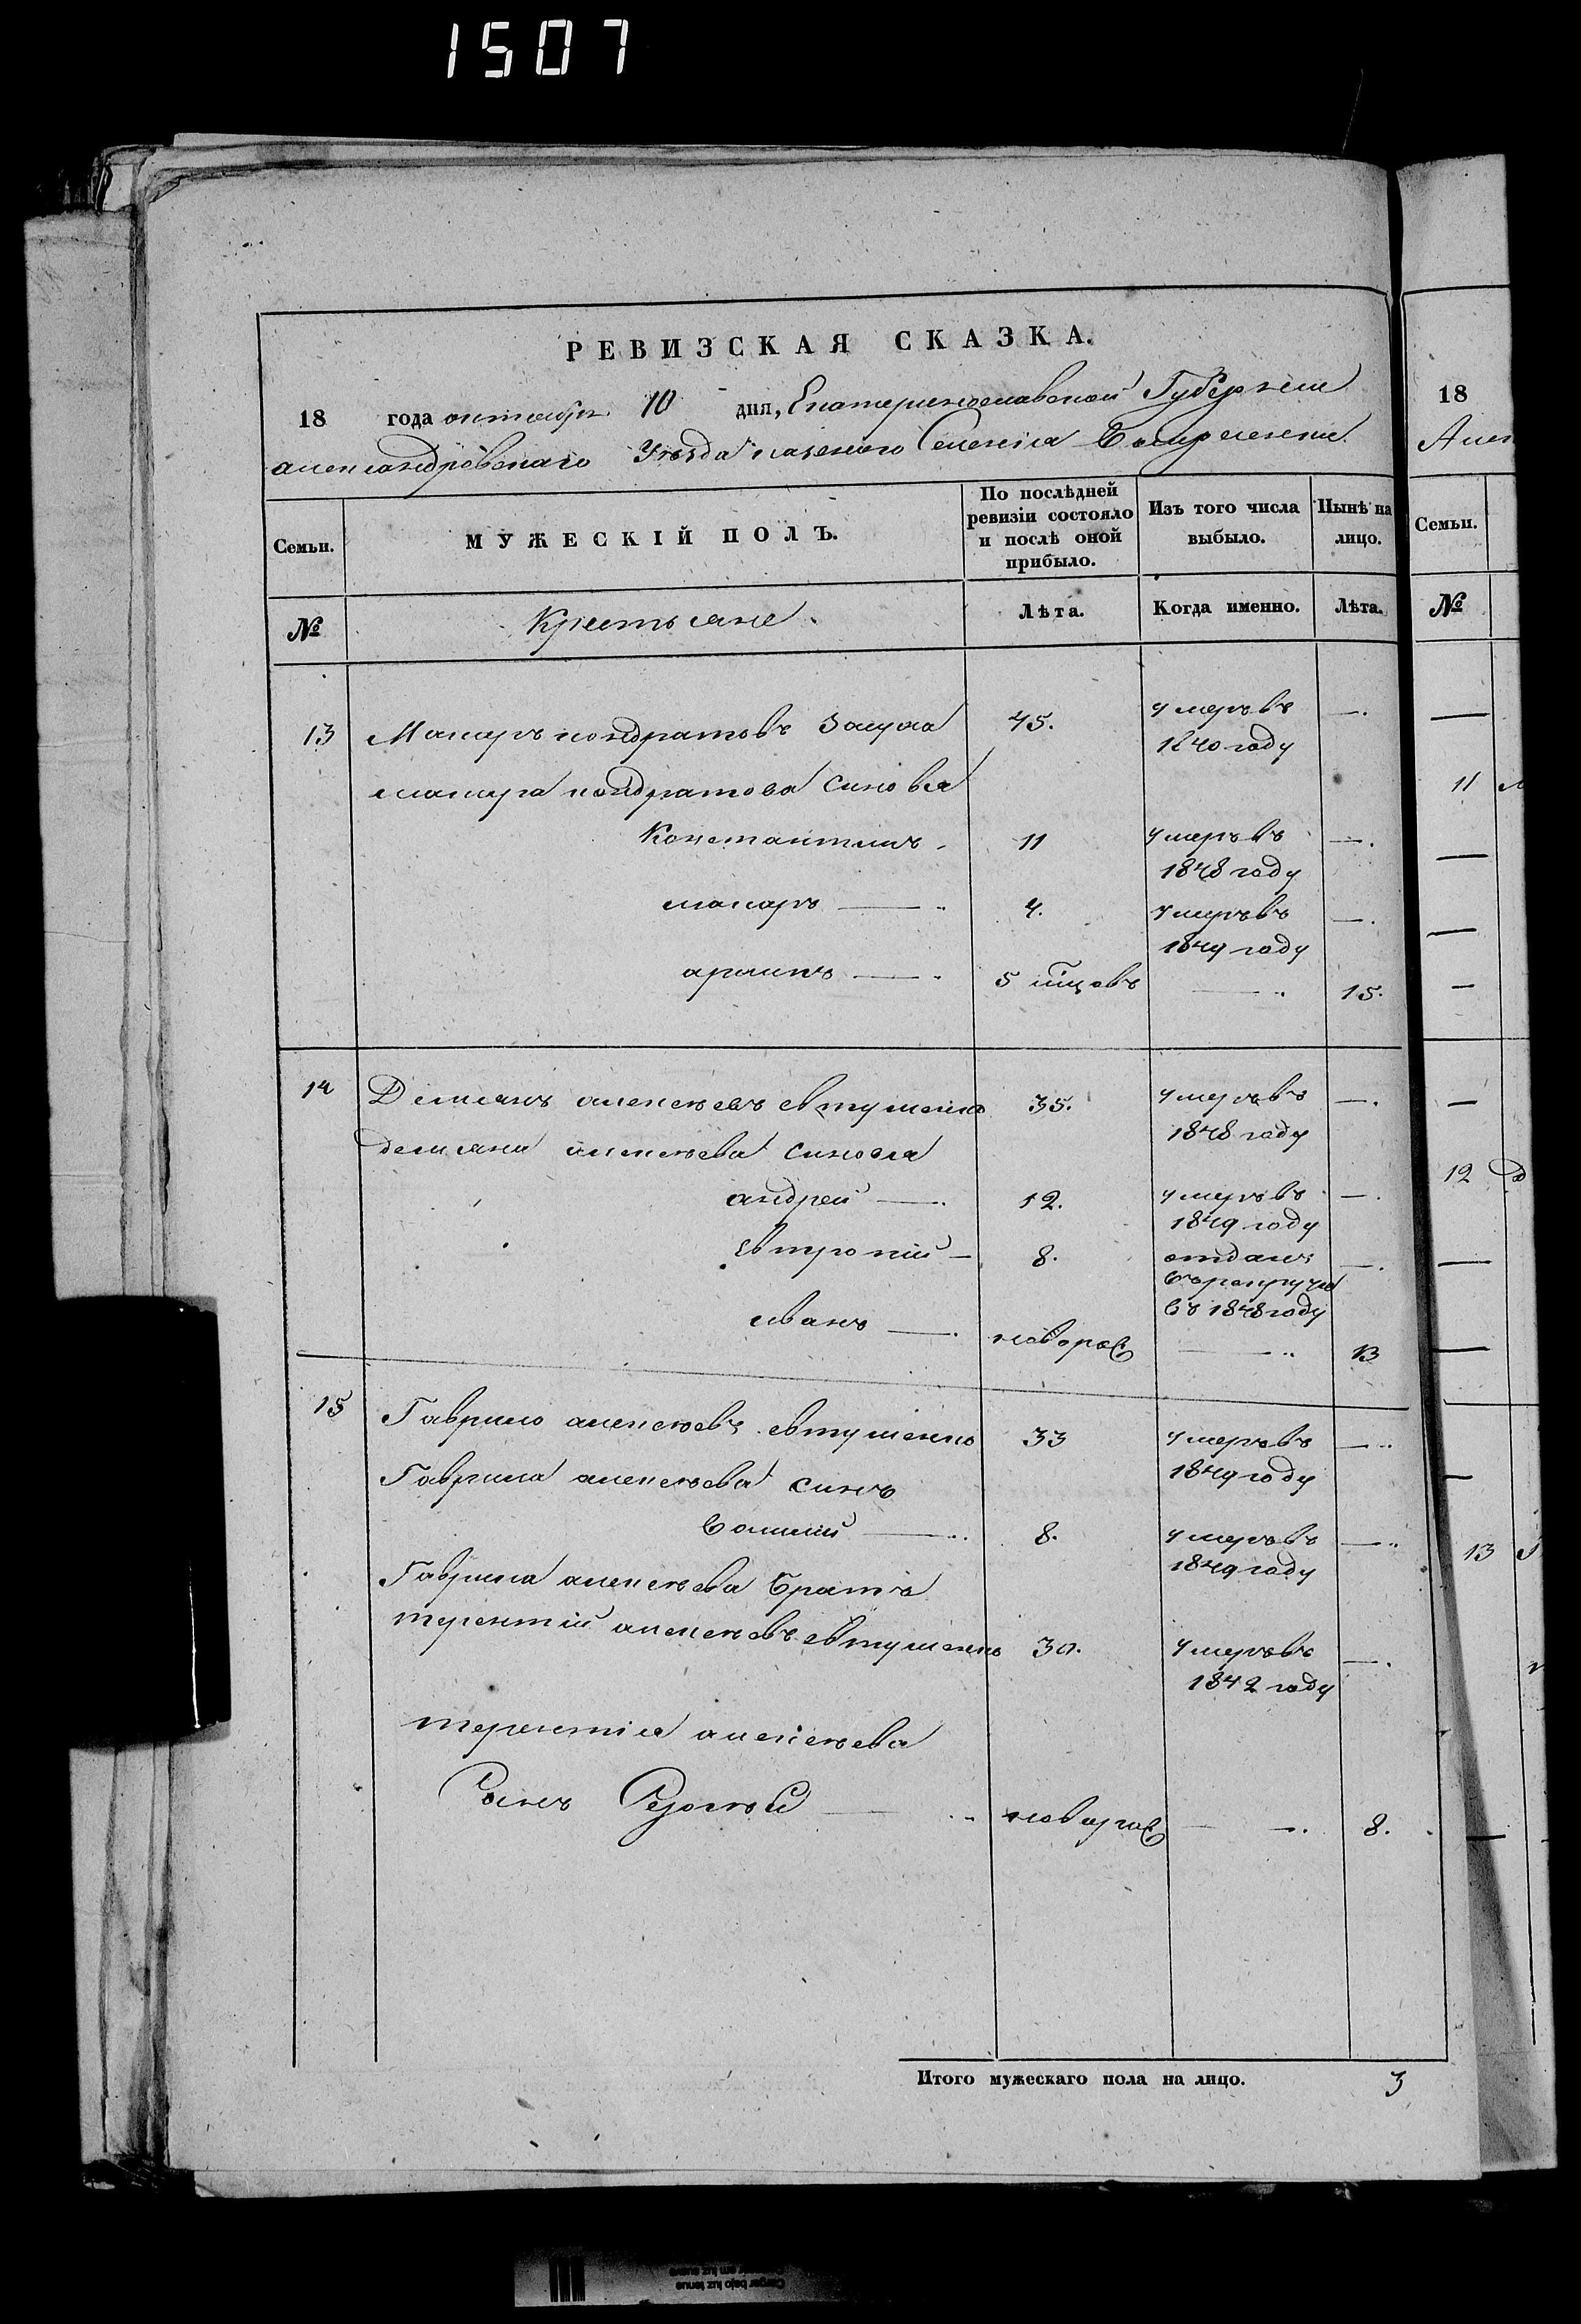 1507
РЕВИЗСКАЯ СКАЗКА.
18 года октября 10 дня, Екатеринославской Губернии
александровскаго Уѣзда казенного Селенія Воскресенки
Семьи. МУЖЕСКІЙ ПОЛЪ. По послѣдней ревизіи состояло и послѣ оной прибыло. Изъ того числа выбыло. Нынѣ на лицо.
№ Крестьяне. Лѣта. Когда именно. Лѣта.
13 Макаръ кондратовъ 45. умеръ въ —.
1840 году
макара кондратова синовя
Константинъ 11 умеръ въ —.
1848 году
макаръ — 4. умеръ въ —.
1849 году
— 5 —. 15.
14 Демянъ алексѣевъ евтушенко 35. умеръ въ —.
1848 году
демяна алексѣева синовя
андрей —. 12. умеръ въ —.
1849 году
Евтропій — 8. отданъ —.
въ рекруты
въ 1848 году
иванъ —. новорос —.. 13
15 Гаврило алексѣевъ евтушенко 33 умеръ въ —..
1849 году
Гаврила алексѣева синъ
— 8. умеръ въ —..
1849 году
Гаврила алексѣева братъ
терентій алексѣевъ евтушенко 30. умеръ въ —.
1842 году
терентія алексѣева
Сынъ —.. новорос —. 8.
Итого мужескаго пола на лицо. 3
18
Алек
Семьи.
№
11
12
13